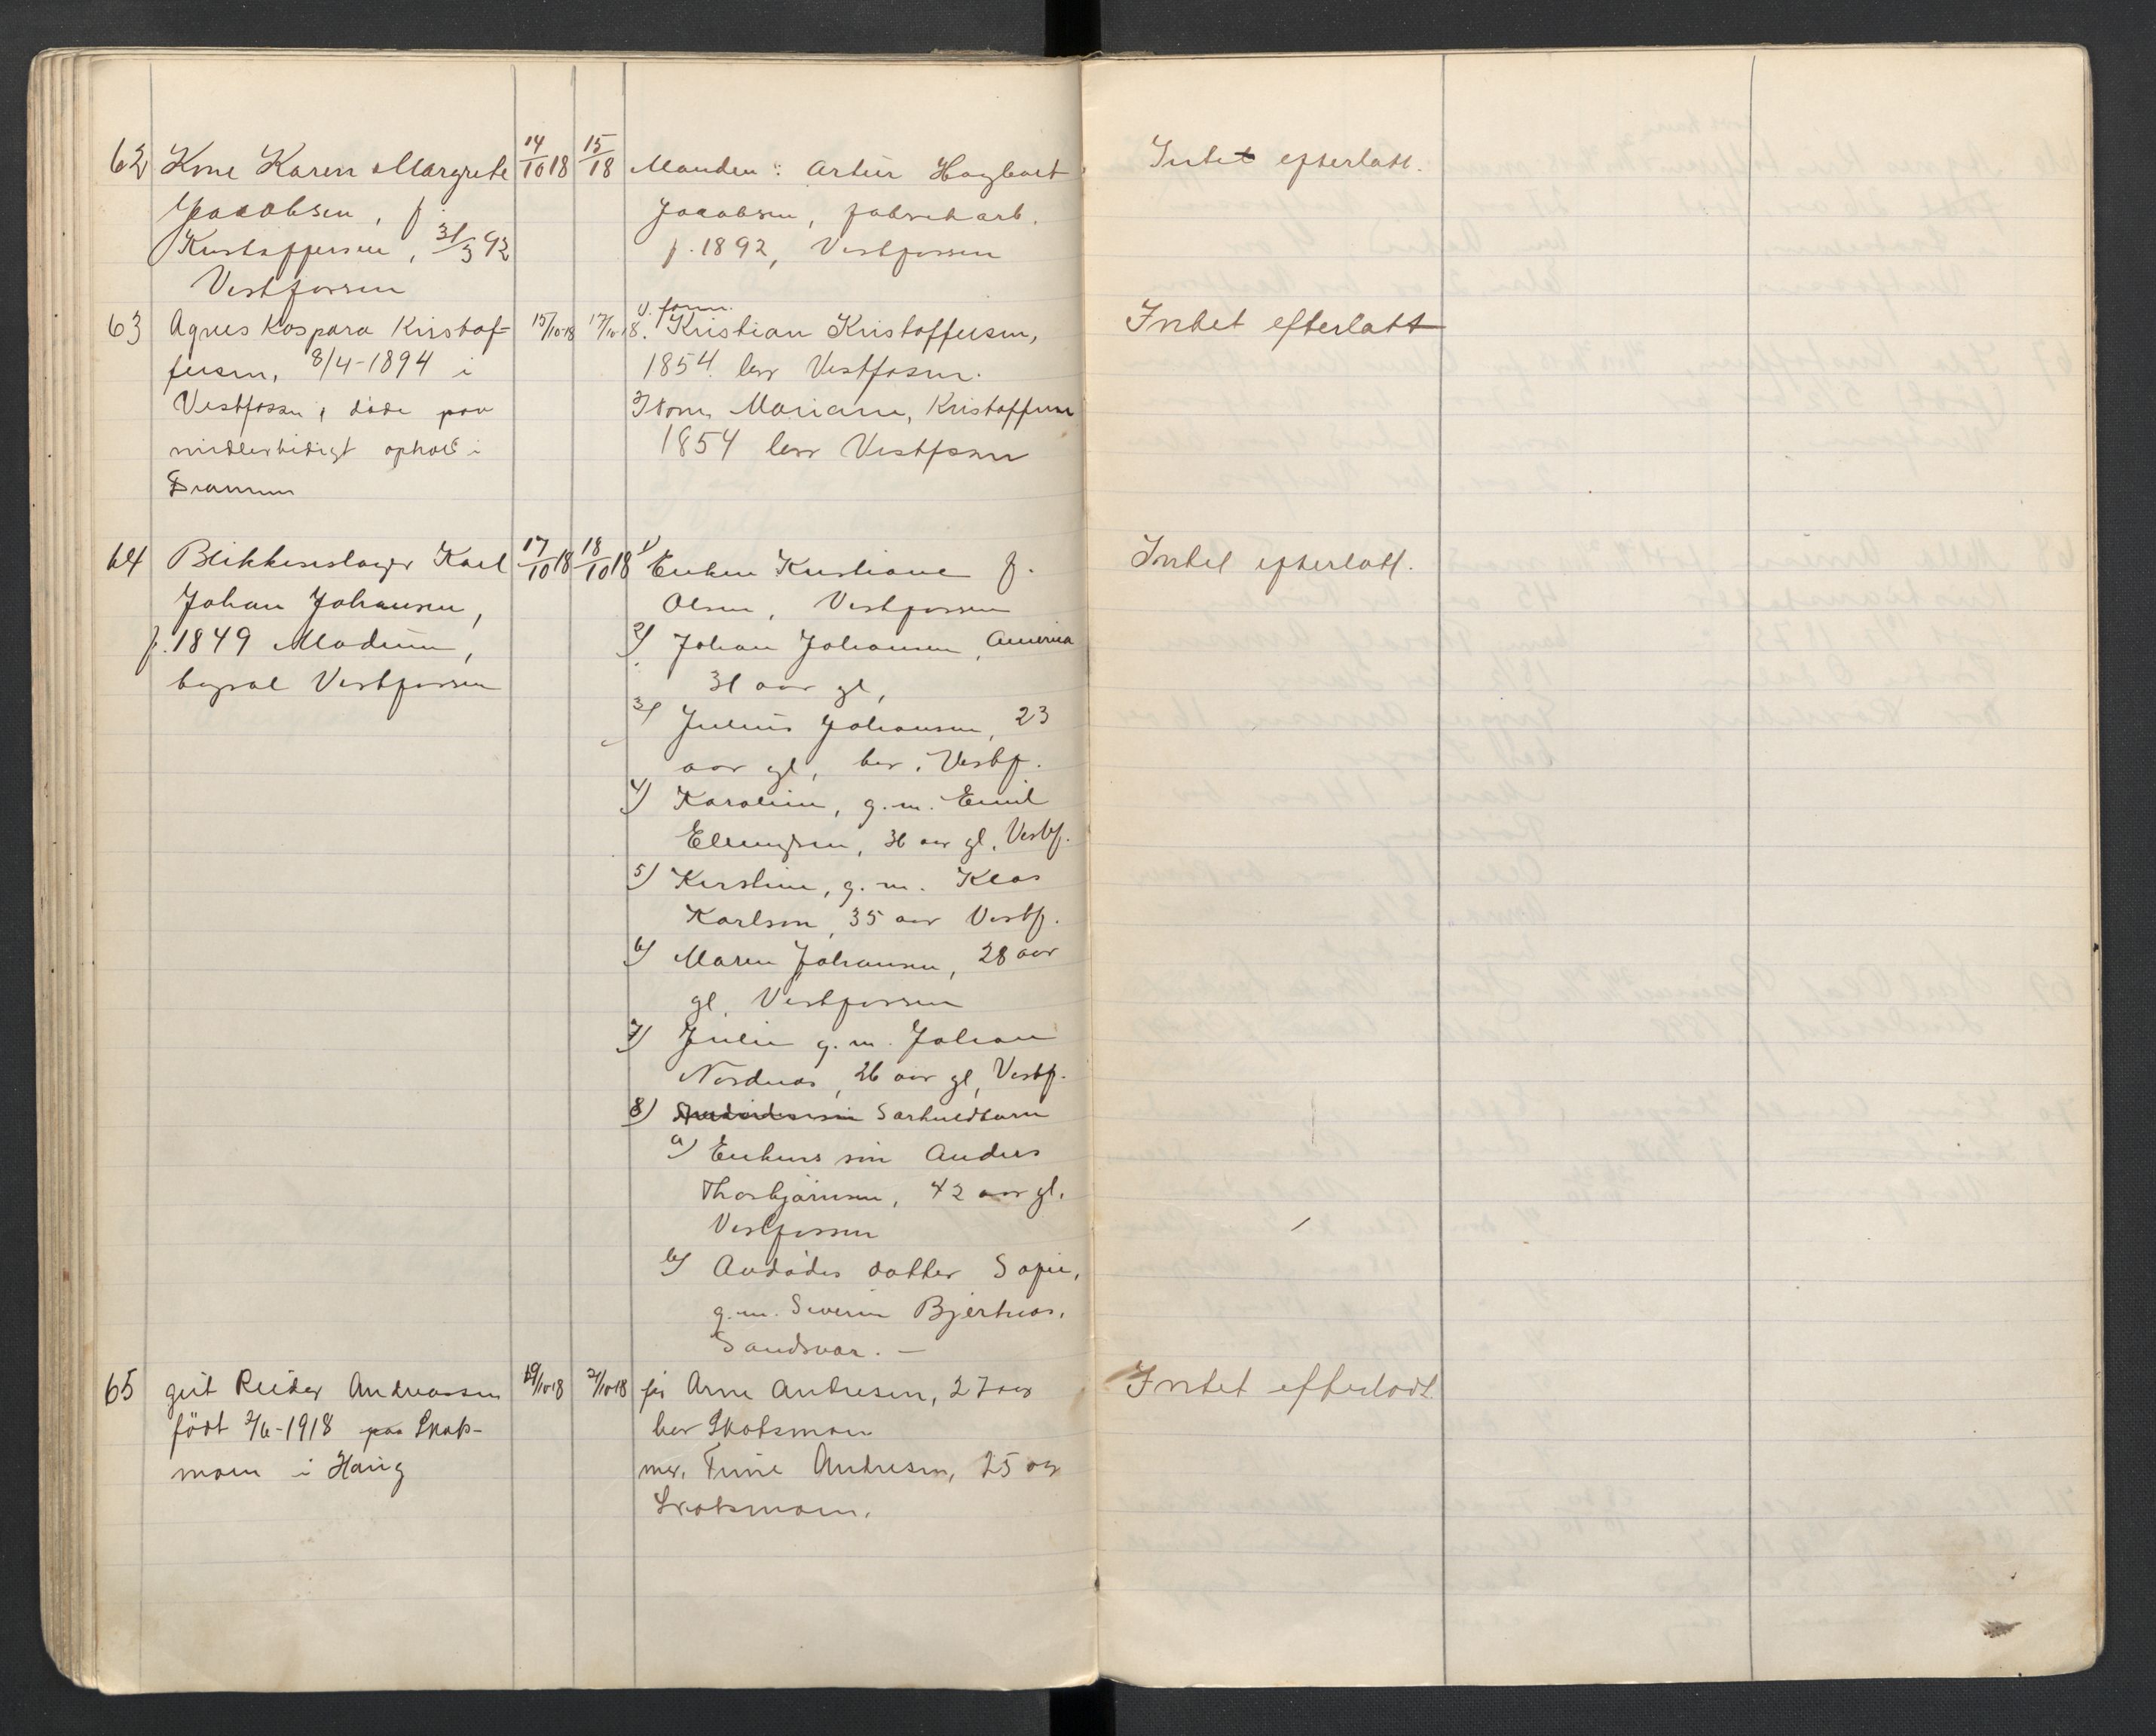 62 Kone Karen Margrete 14/10 18 15/18 Manden: Artur Hagbart Intet efterlatt.
Jacobsen, f. Jacobsen, fabrikarb.
Kristoffersen, 31/3 92 f. 1892, Vestfossen
Vestfossen
63 Agnes Kaspara Kristof- 15/10-18 17/10-18. Kristian Kristoffersen, Intet efterlatt
fersen, 8/4-1894 i 1854. bor Vestfossen.
Vestfossen, døde paa Mariane, Kristoffersen
midlertidigt ophold i 1854 bor Vestfossen
Drammen
64 Blikkenslager Karl 17/10 18 18/10 18 1) Enken Kristiane f. Intet efterlatt.
Johan Johansen, Olsen, Vestfossen
f. 1849 Modum, 2) Johan Johansen, America
bopæl Vestfossen 31 aar gl,
3) Julius Johansen, 23
aar gl, bor. Vestf.
4) Karoline, g.m. Emil
Ellingsen, 36 aar gl, Vestf.
5) Kirstine, g.m. Klas
Karlsen, 35 aar Vestf.
6) Maren Johansen, 28 aar
gl, Vestfossen
7) Julie g.m. Johan
Nordnas, 26 aar gl, Vestf.
8) Særkuldbarn
a) Enkens sön Anders
Thorbjørnsen, 42 aar gl.
Vestfossen
b) Avdødes datter Sofie,
g.m. Severin Bjerknas,
Sandsvær. —
65 gut Reidar Andreassen 19/10-18 21/10-18 far Arne Andresen, 27 aar Intet efterladt.
født 2/6-1918 paa Skots- bor Skotsmoen
moen i Haug mor, Andresen, 25 aar
Skotsmoen.